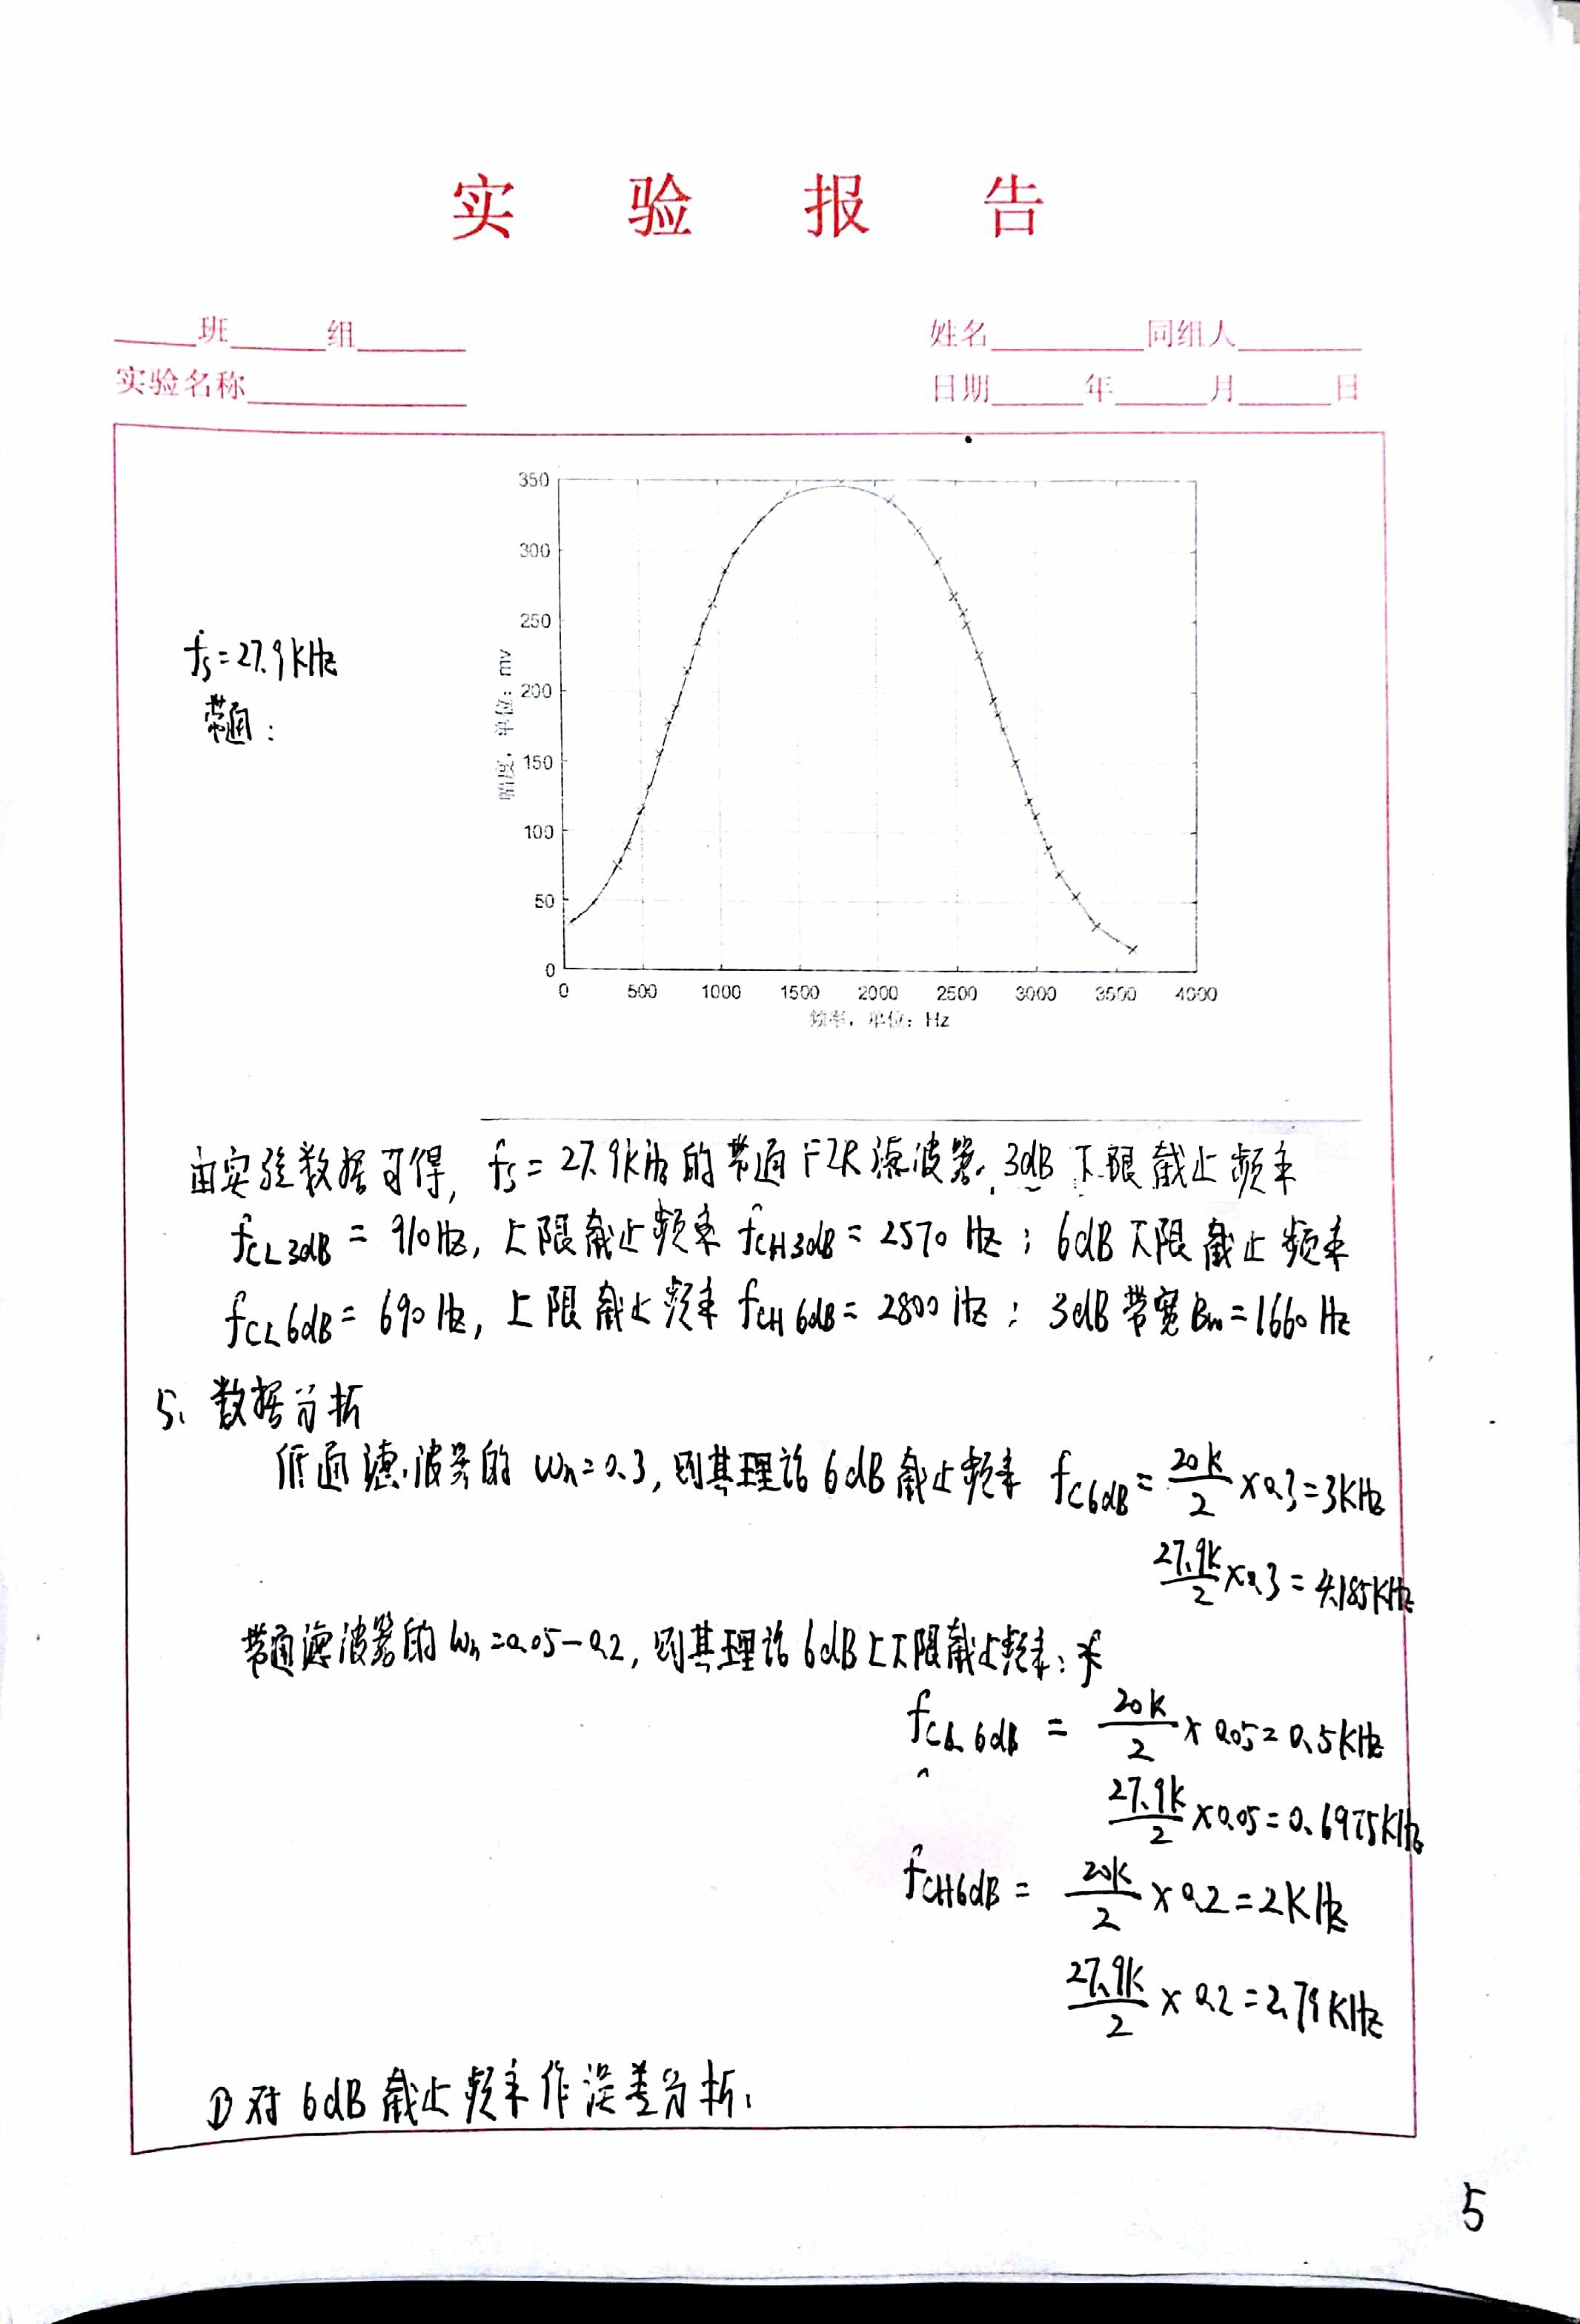 实验报告
班 组 姓名 同组人
实验名称 日期 年 月 日
350
300
250
200
150
100
50
0
幅度，单位：mv
0 500 1000 1500 2000 2500 3000 3500 4000
频率，单位：Hz
fs=27.9KHz
带通：
由实验数据可得，fs=27.9kHz的带通FIR滤波器，3dB下限截止频率
fCL3dB=910Hz，上限截止频率fCH3dB=2570Hz；6dB下限截止频率
fCL6dB=690Hz，上限截止频率fCH6dB=2800Hz；3dB带宽Bw=1660Hz
5、数据分析
低通滤波器的Wn=0.3，则其理论6dB截止频率 fC6dB=20K/2×0.3=3KHz
27.9K/2×0.3=4.185KHz
带通滤波器的Wn=0.05-0.2，则其理论6dB上下限截止频率：
fCL6dB=20K/2×0.05=0.5KHz
27.9K/2×0.05=0.6975KHz
fCH6dB=20K/2×0.2=2KHz
27.9K/2×0.2=2.79KHz
①对6dB截止频率作误差分析：
5